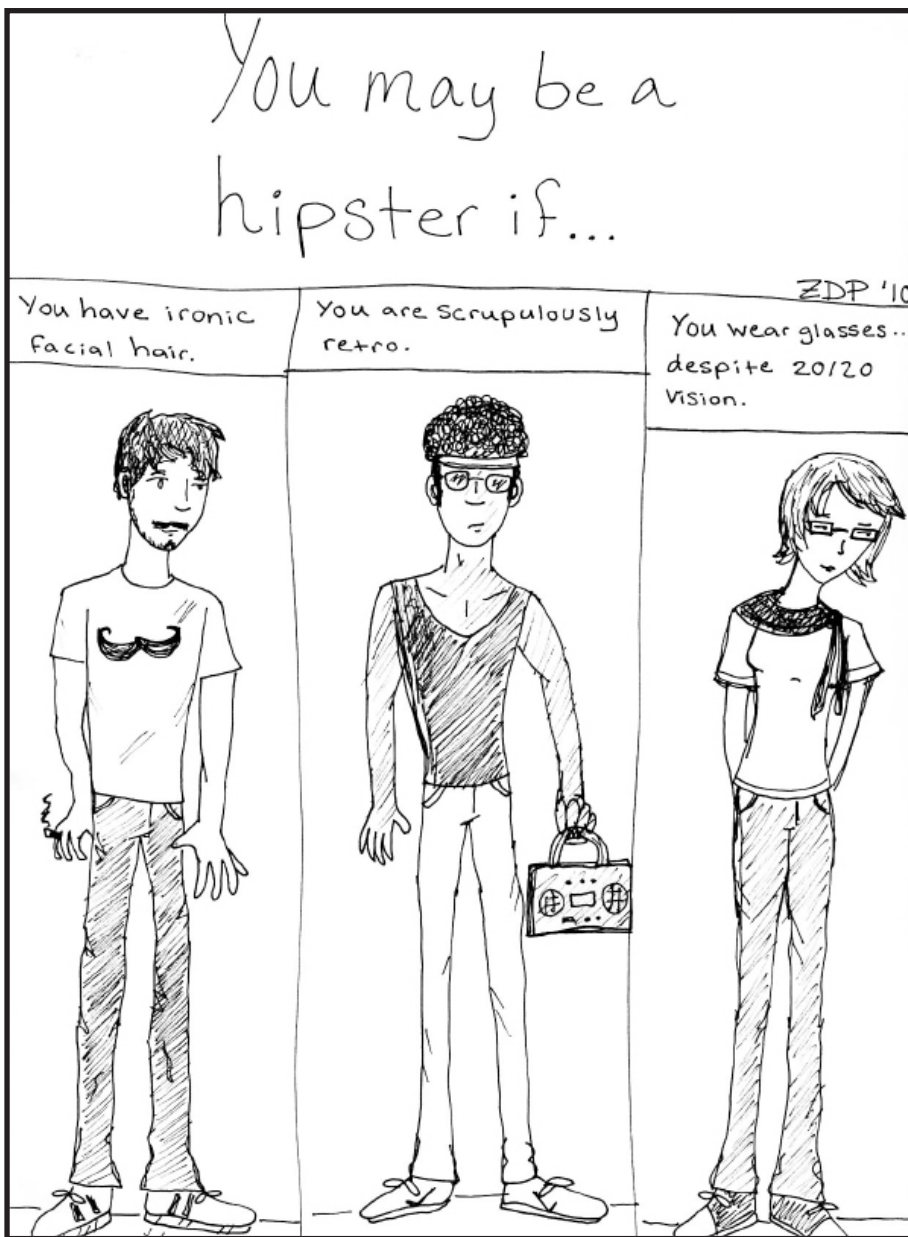 You may be a
hipster if...
ZDP '10
You have ironic
facial hair.
You are scrupulously
retro.
You wear glasses...
despite 20/20
vision.